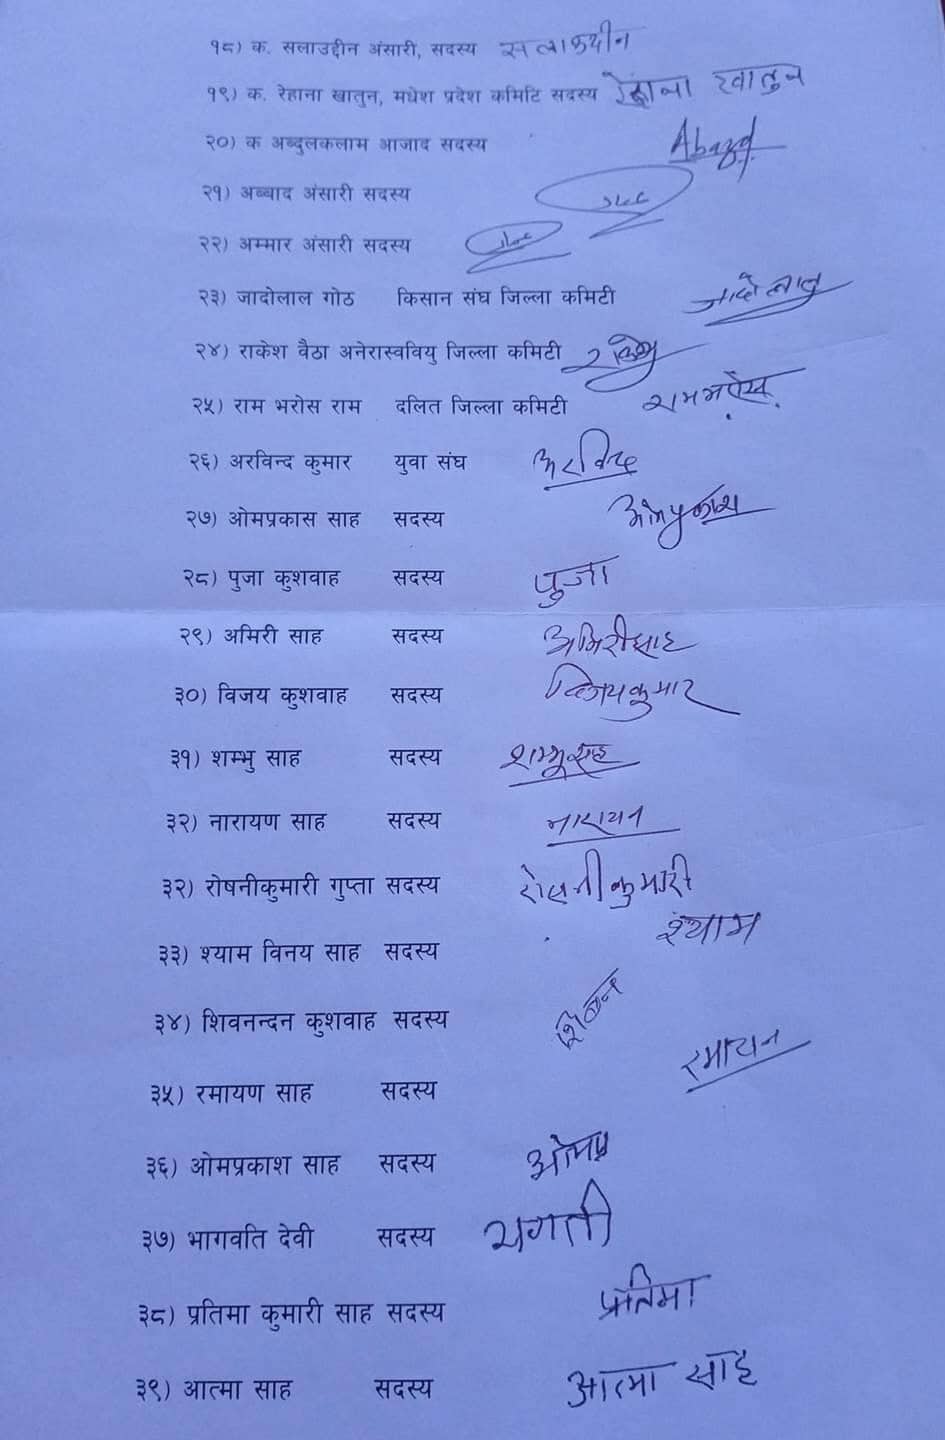 १८) क. सलाउद्दीन अंसारी, सदस्य सलाऊदीन
१९) क. रेहाना खातुन, मधेश प्रदेश कमिटि सदस्य रेहाना खातुन
२०) क अब्दुलकलाम आजाद सदस्य
२१) अब्बाद अंसारी सदस्य
२२) अम्मार अंसारी सदस्य
२३) जादोलाल गोठ किसान संघ जिल्ला कमिटी जादोलाल
२४) राकेश बैठा अनेरास्ववियु जिल्ला कमिटी
२५) राम भरोस राम दलित जिल्ला कमिटी
२६) अरविन्द कुमार युवा संघ अरविन्द
२७) ओमप्रकास साह सदस्य ओमप्रकाश
२८) पुजा कुशवाह सदस्य पुजा
२९) अमिरी साह सदस्य अमिरी साह
३०) विजय कुशवाह सदस्य विजय कुमार
३१) शम्भु साह सदस्य शम्भू साह
३२) नारायण साह सदस्य नारायन
३२) रोषनीकुमारी गुप्ता सदस्य रोसनी कुमारी
३३) श्याम विनय साह सदस्य श्याम
३४) शिवनन्दन कुशवाह सदस्य
३५) रमायण साह सदस्य रमायन
३६) ओमप्रकाश साह सदस्य ओमप्र
३७) भागवति देवी सदस्य
३८) प्रतिमा कुमारी साह सदस्य प्रतिमा
३९) आत्मा साह सदस्य आत्मा साह